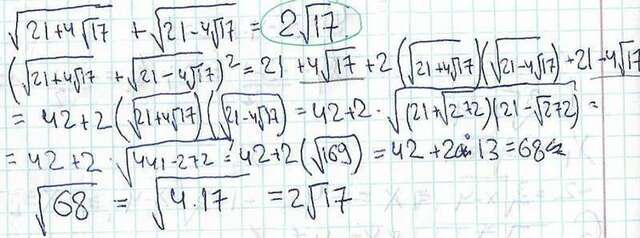 √(21+4√17) + √(21-4√17) = 2√17
(√(21+4√17) + √(21-4√17))² = 21 + 4√17 + 2(√(21+4√17))(√(21-4√17)) + 21 - 4√17
= 42 + 2(√(21+4√17))(√(21-4√17)) = 42 + 2 · √((21+√272)(21-√272)) =
= 42 + 2 · √(441-272) = 42 + 2(√169) = 42 + 2 · 13 = 68
√68 = √(4·17) = 2√17